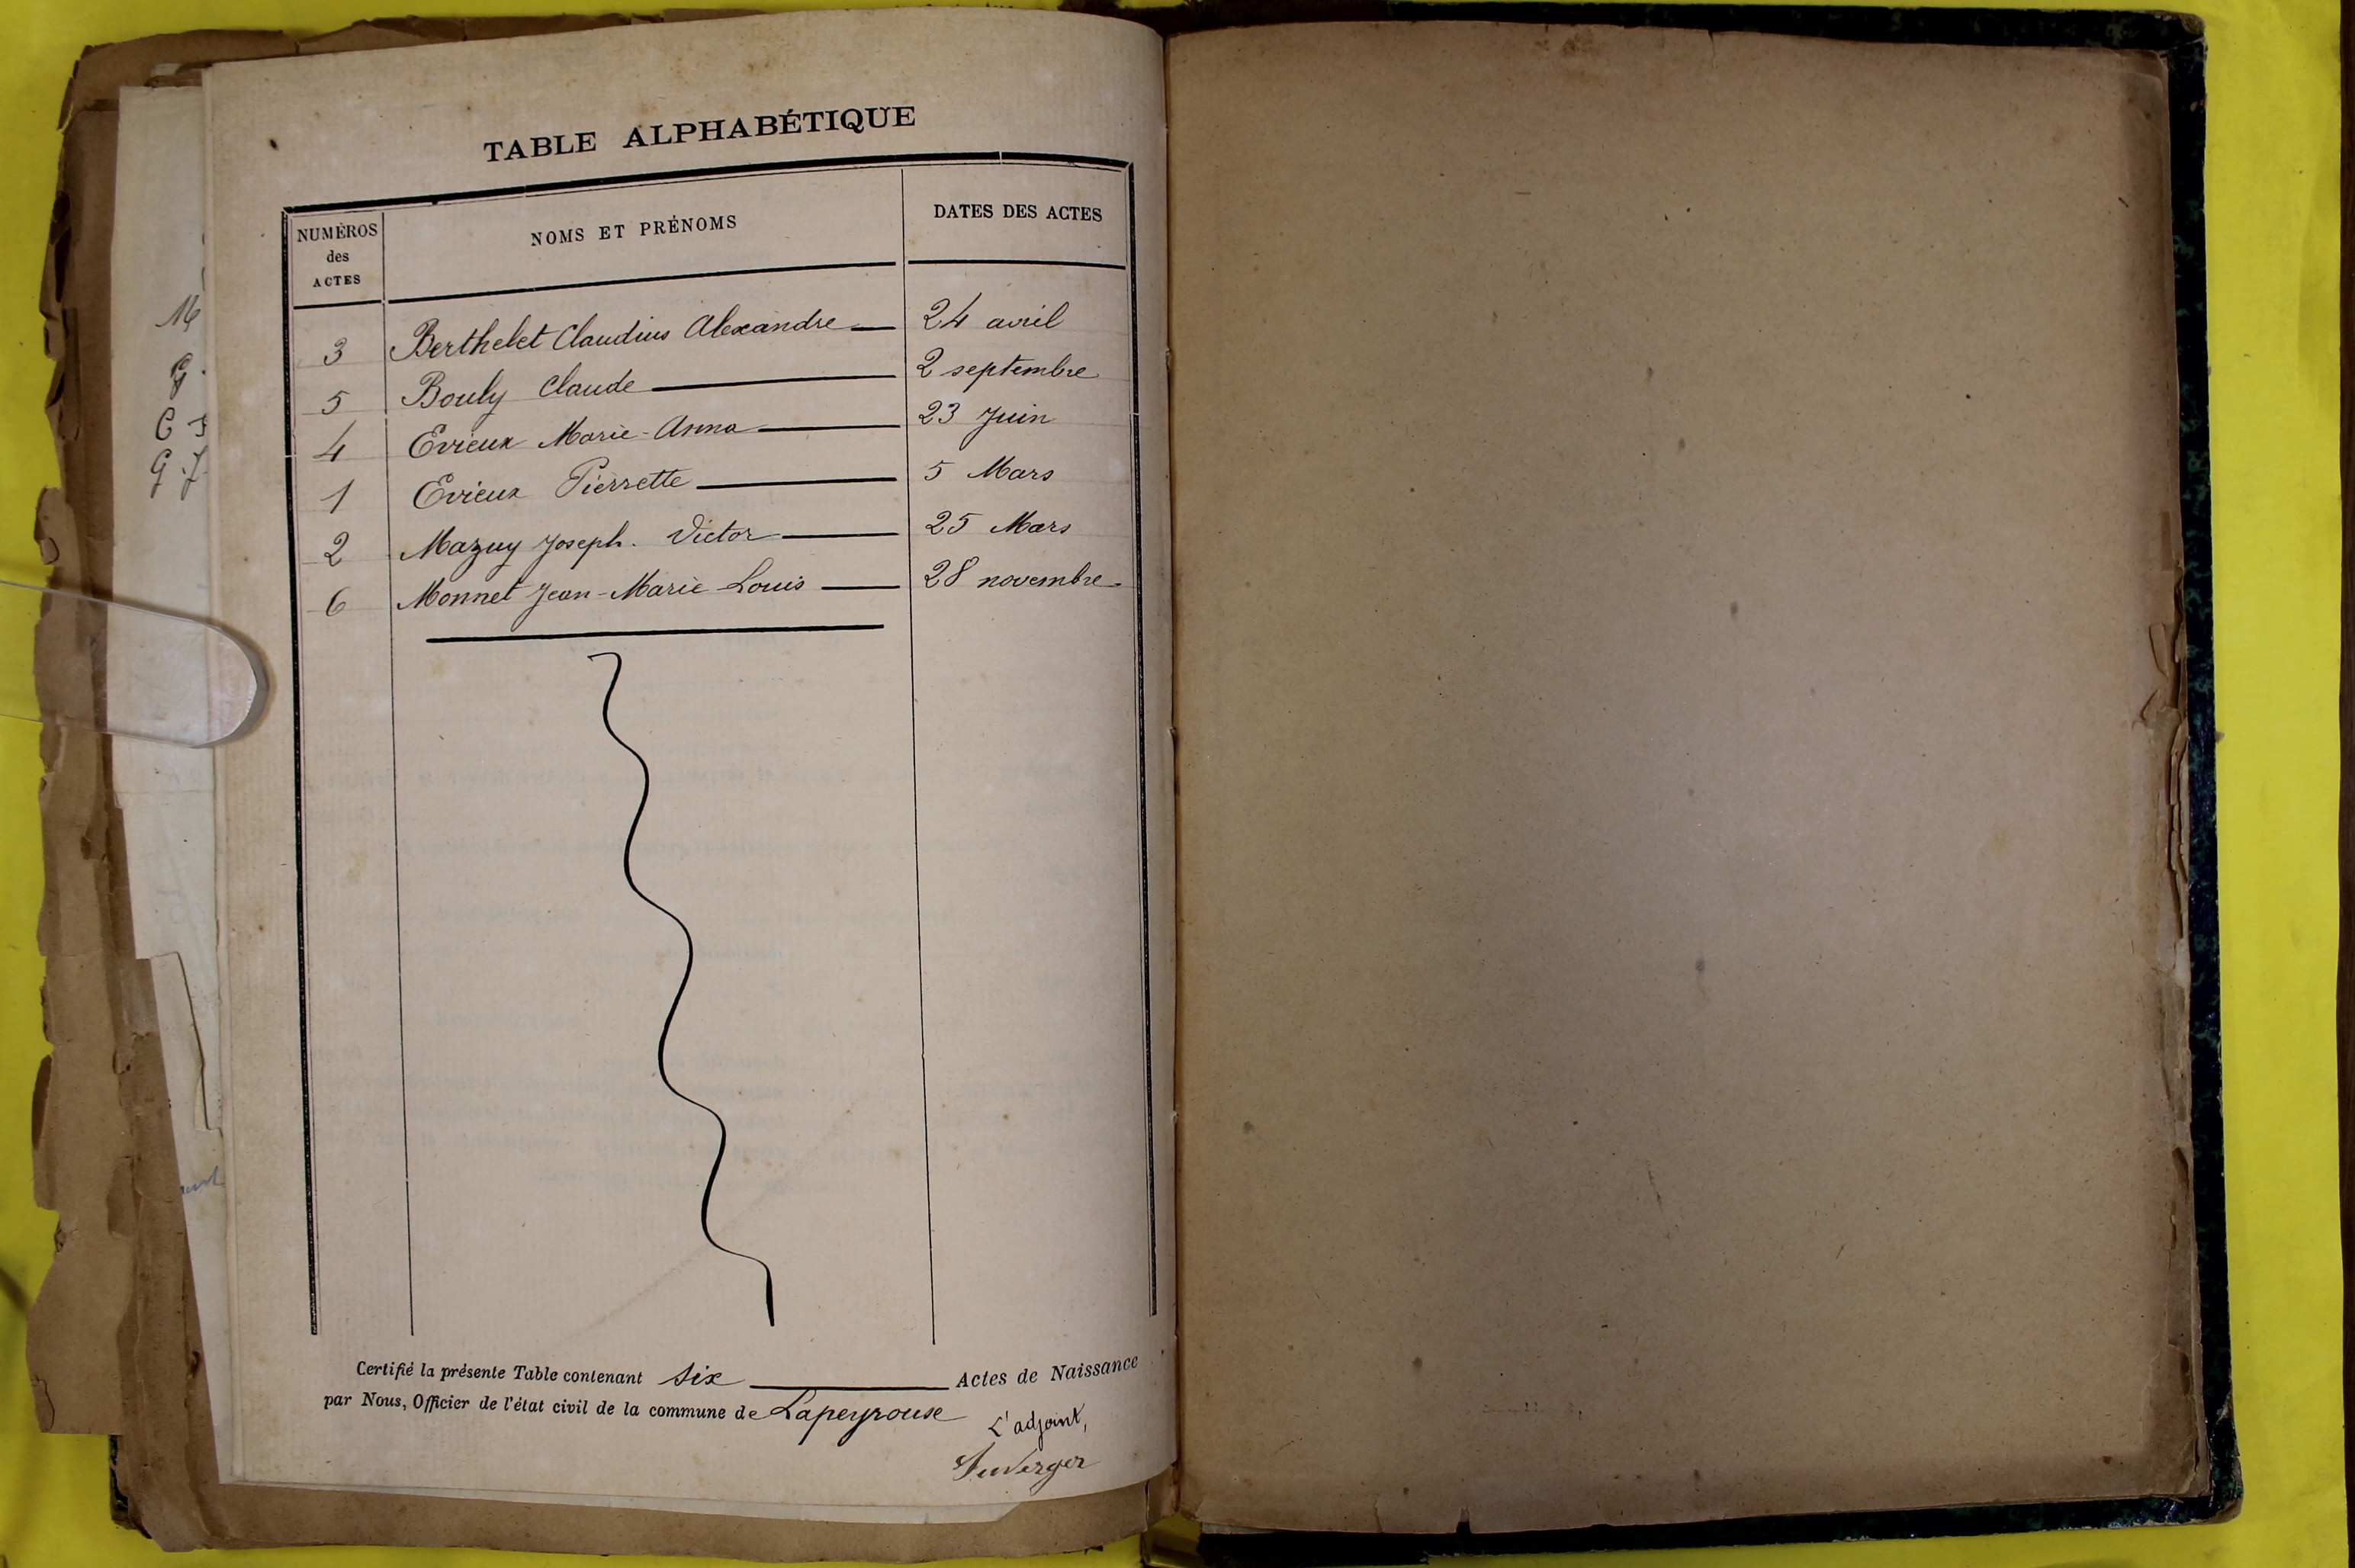 TABLE ALPHABÉTIQUE
NUMÉROS des ACTES NOMS ET PRÉNOMS DATES DES ACTES
3 Berthelet Claudius Alexandre 24 avril
5 Bouly Claude 2 septembre
4 Evieux Marie-Anna 23 Juin
1 Evieux Pierrette 5 Mars
2 Mazuy Joseph. Victor 25 Mars
6 Monnet Jean-Marie-Louis 28 novembre
Certifié la présente Table contenant six Actes de Naissance
par Nous, Officier de l'état civil de la commune de Lapeyrouse
L'adjoint,